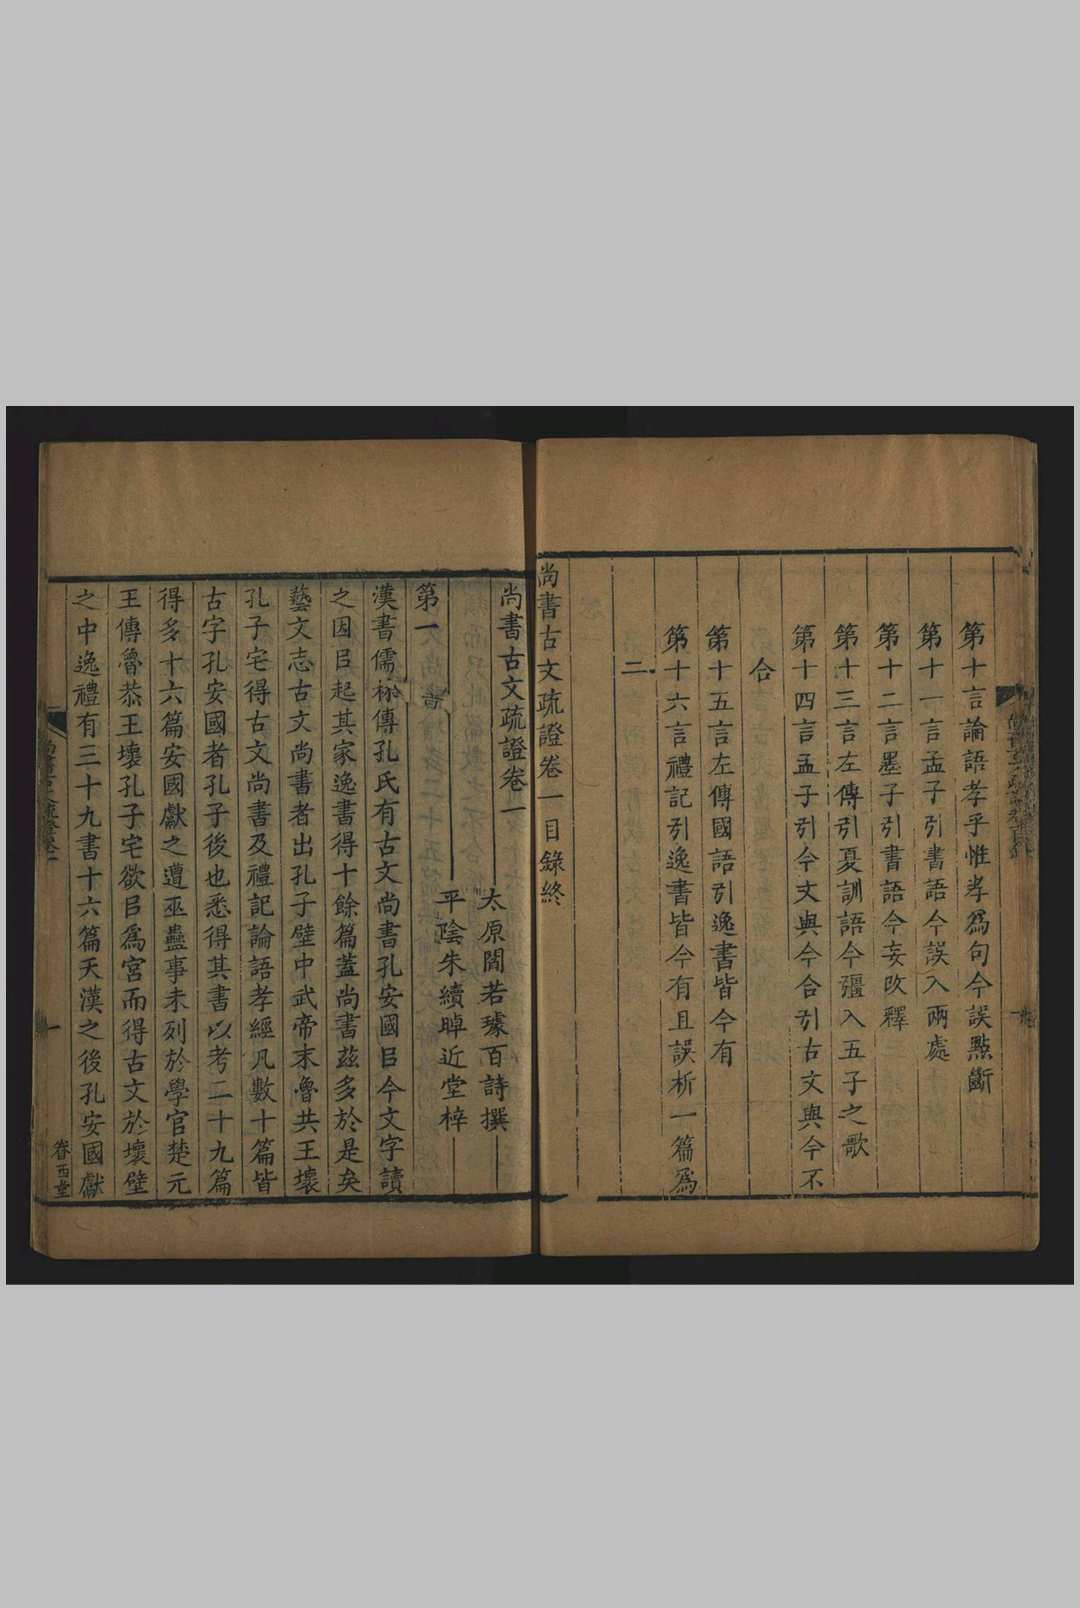 第十言論語孝乎惟孝爲句今誤點斷
第十一言孟子引書語今誤入兩處
第十二言墨子引書語今妄改釋
第十三言左傳引夏訓語今彊入五子之歌
第十四言孟子引今文與今合引古文與今不
合
第十五言左傳國語引逸書皆今有
第十六言禮記引逸書皆今有且誤析一篇爲
二
尚書古文疏證卷一目錄終
尚書古文疏證卷一
太原閻若璩百詩撰
平陰朱續晫近堂梓
第一
漢書儒林傳孔氏有古文尚書孔安國㠯今文字讀
之因㠯起其家逸書得十餘篇蓋尚書茲多於是矣
藝文志古文尚書者出孔子壁中武帝末魯共王壞
孔子宅得古文尚書及禮記論語孝經凡數十篇皆
古字孔安國者孔子後也悉得其書以考二十九篇
得多十六篇安國獻之遭巫蠱事未列於學官楚元
王傳魯恭王壞孔子宅欲㠯爲宮而得古文於壞壁
之中逸禮有三十九書十六篇天漢之後孔安國獻
尚書古文疏證卷一
一
眷西堂